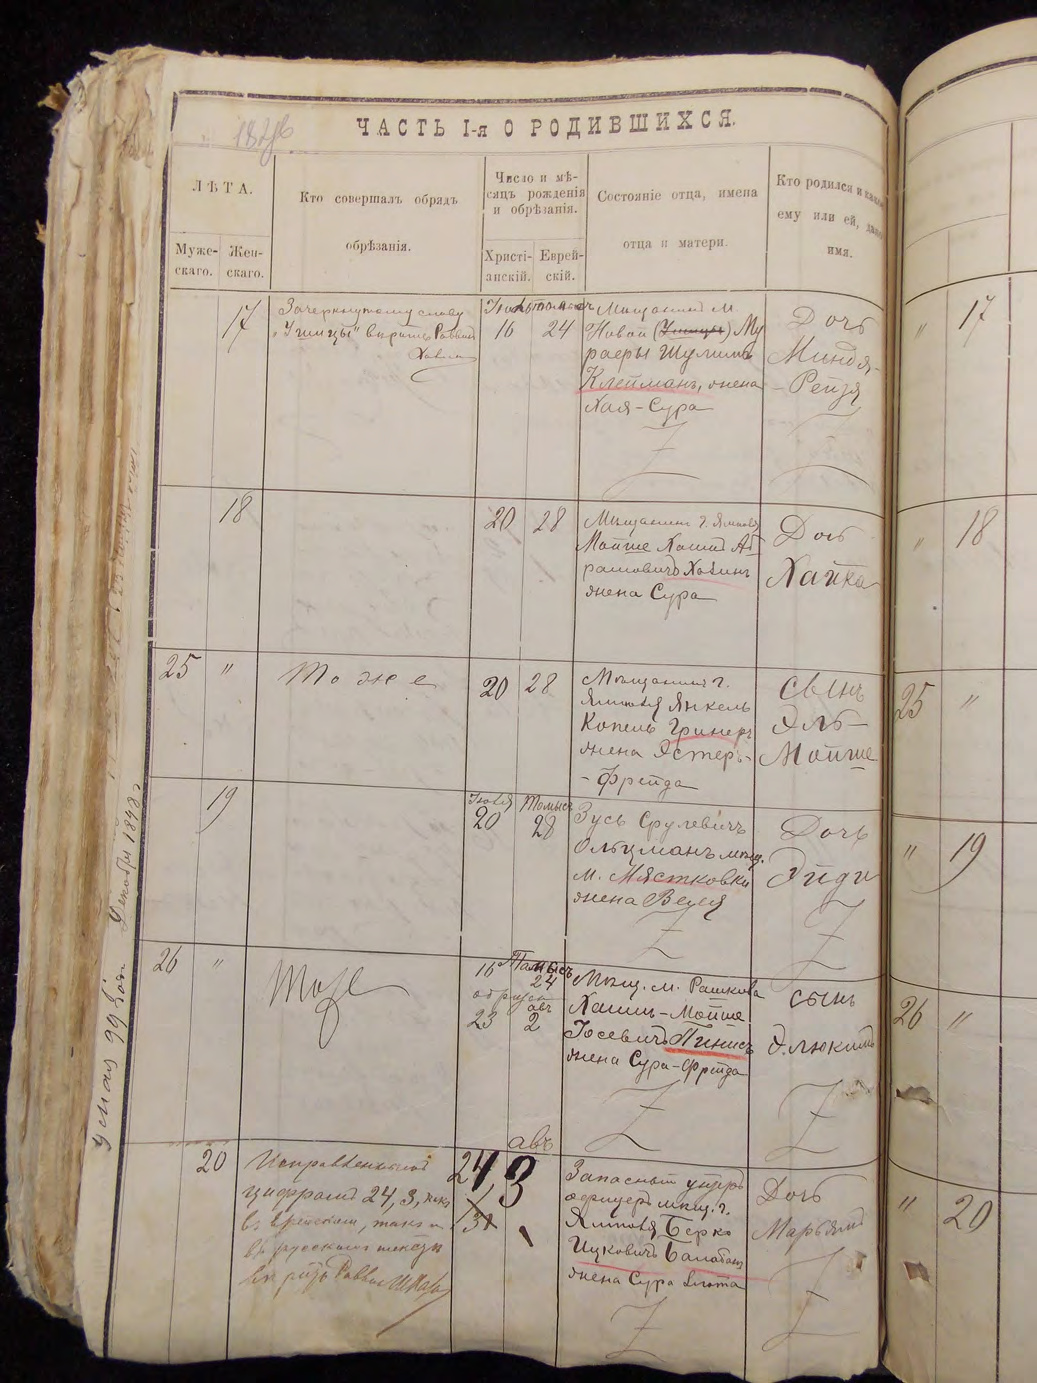 ЧАСТЬ I-я О РОДИВШИХСЯ.
ЛѢТА.
Муже-
скаго.
Жен-
скаго.
Кто совершалъ обрядъ
обрѣзанія.
Число и мѣ-
сяцъ рожденія
и обрѣзанія.
Христі-
анскій.
Еврей-
скій.
Состояніе отца, имена
отца и матери.
Кто родился и какое
ему или ей, дано
имя.
17
Зачеркнутому слову
"Ушицы" верить Раввинъ
16
24
Мещанинъ М
Новой (Ушицы) Му
раеры Шулимъ
Клейманъ, жена
Хая-Сура
Дочь
Миндя-
-Рейзя
18
20
28
Мещанинъ г. Ямполя
Мойше Хаимъ Аб
рамовичъ
жена Сура
Дочь
Хайка
25
"
Тоже
20
28
Мещанинъ г.
Ямполя Янкель
Копель Гринеръ
жена Эстеръ-
-Фрейда
Сынъ
Эль-
Мойше
19
Іюля
20
Тамысъ
28
Зусь Срулевичъ
Ольцманъ мещ.
м. Мястковки
жена Веля
Дочь
Эйди
26
"
Тоже
16
Тамысъ
24
обрѣзан
23
авъ
2
Мещ. м. Рашкова
Хаимъ-Мойше
Іосевичъ Пинисъ
жена Сура-Фрейда
сынъ
Элюкимъ
20
Исправленнымъ
цифрамъ 24, 3, какъ
въ еврейскомъ, такъ и
въ русскомъ текстѣ
верить Раввинъ
24,
авъ
3
Запасный унтръ
офицеръ мещ. г.
Ямполя Берко
Ицковичъ Балабанъ
жена Сура Злота
Дочь
Марьямъ
"
17
"
18
25
"
"
19
26
"
"
20